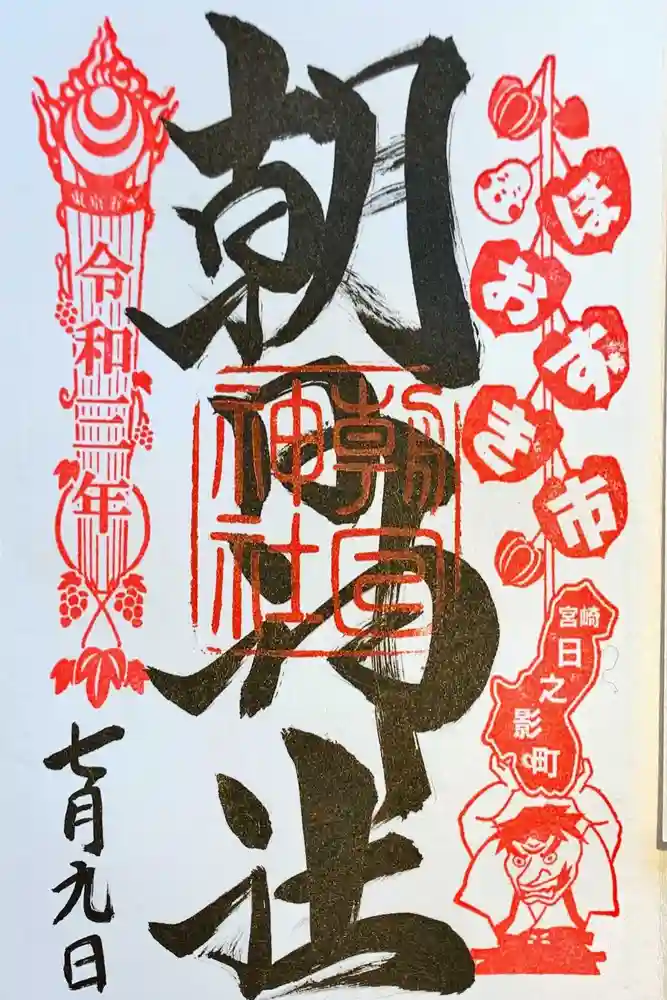 ほおずき市
宮崎
日之影町
朝日神社
朝日
神社
令和三年
七月九日